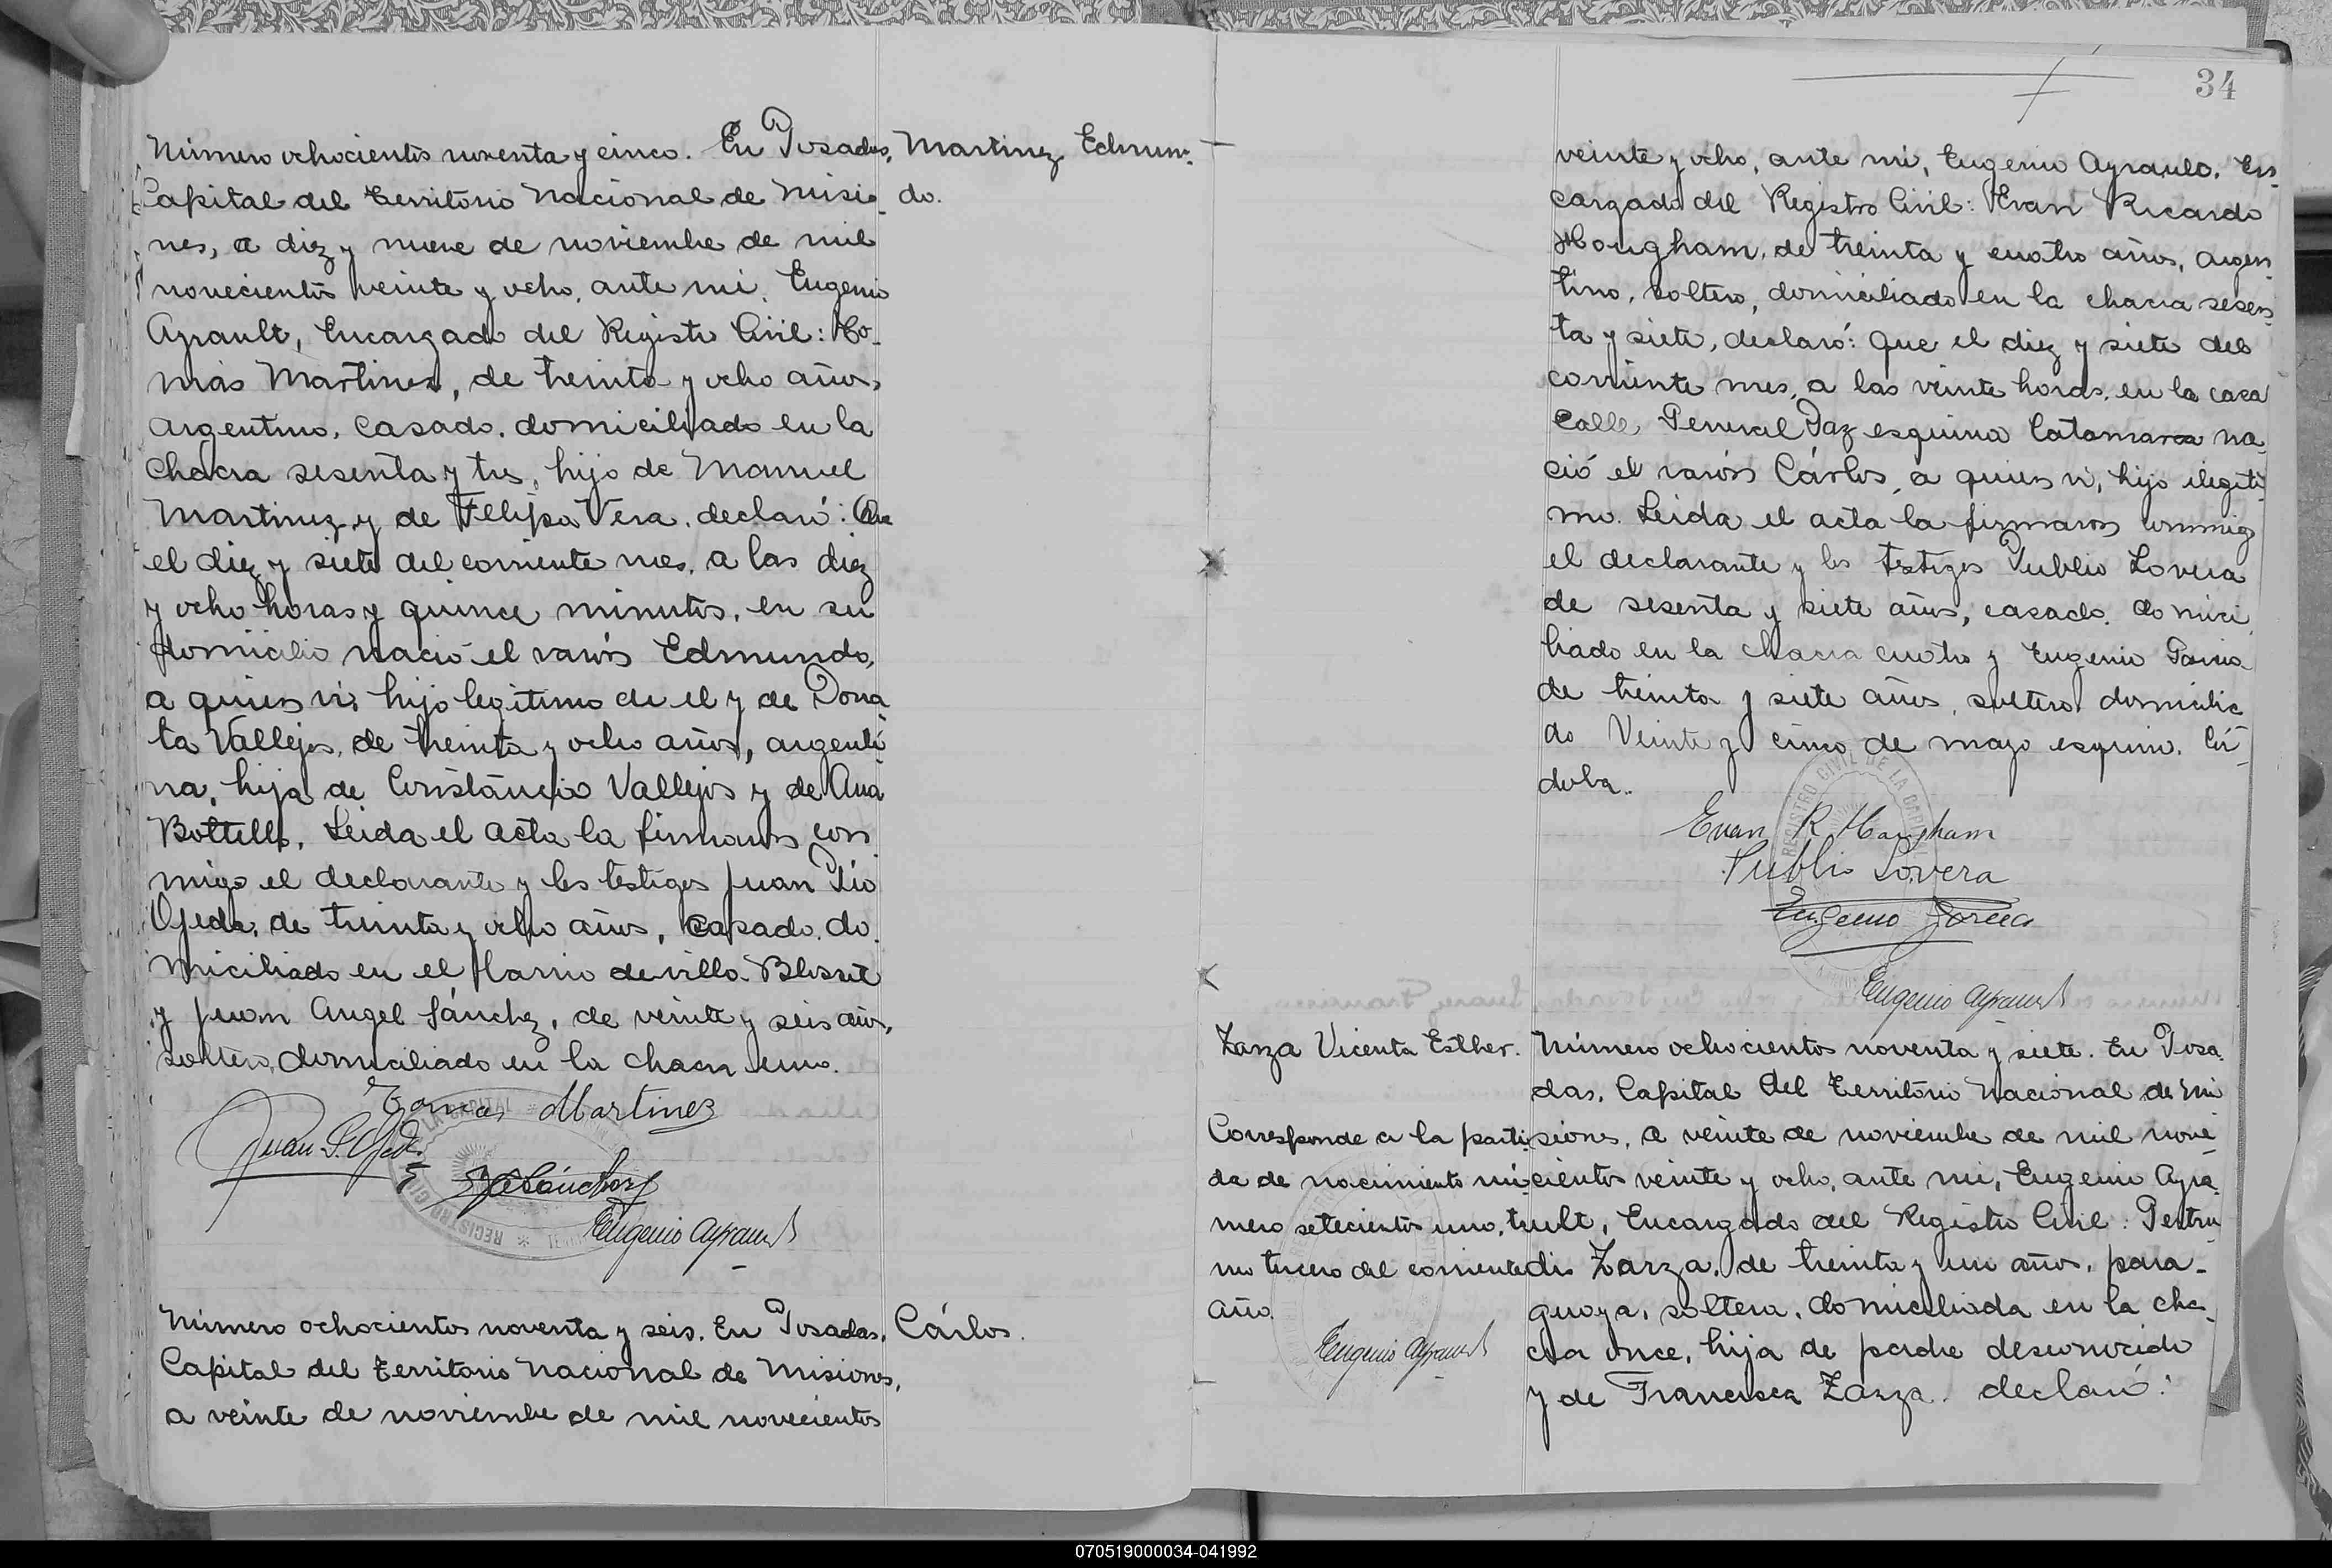 Número ochocientos noventa y cinco. En Posadas,
Capital del Territorio Nacional de Misio-
nes, a diez y nueve de noviembre de mil
novecientos veinte y ocho, ante mi, Eugenio
Ayrault, Encargado del Registro Civil: To-
más Martinez, de treinta y ocho años,
argentino, casado, domiciliado en la
chacra sesenta y tres, hijo de Manuel
Martinez y de Felipa Vera, declaró: Que
el diez y siete del corriente mes, a las diez
y ocho horas y quince minutos, en su
domicilio nació el varón Edmundo,
a quien vi, hijo legitimo de el y de Dona
ta Vallejos, de treinta y ocho años, argenti
na, hija de Constancio Vallejos y de Ana
Bottello. Leida el acta la firmaron con
migo el declarante y los testigos Juan Pio
Ojeda, de treinta y ocho años, casado, do
miciliado en el barrio de villa Blosset
y Juan Angel Sánchez, de veinte y seis años,
soltero, domiciliado en la chacra uno.
Tomas Martinez
Juan P. Ojeda
J A Sánchez
Eugenio Ayrault
Martinez Edmun-
do.
Número ochocientos noventa y seis. En Posadas,
Capital del Territorio Nacional de Misiones,
a veinte de noviembre de mil novecientos
Cárlos.
34
veinte y ocho, ante mi, Eugenio Ayrault, En-
cargado del Registro Civil: Evan Ricardo
Hougham, de treinta y cuatro años, argen-
tino, soltero, domiciliado en la chacra sesen-
ta y siete, declaró: Que el diez y siete del
corriente mes, a las veinte horas, en la casa
calle General Paz esquina Catamarca na
ció el varón Cárlos, a quien vi, hijo ilegiti-
mo. Leida el acta la firmaron conmigo
el declarante y los testigos Publio Lovera
de sesenta y siete años, casado, domici
liado en la chacra cuatro y Eugenio Garcia
de treinta y siete años, soltero, domicilia
do Veinte y cinco de mayo esquina Cór-
doba.
Evan R Hougham
Publio Lovera
Eugenio Garcia
Eugenio Ayrault
Zarza Vicenta Esther.
Corresponde a la parti-
da de nacimiento nú-
mero setecientos uno, to-
mo tercero del corriente
año.
Eugenio Ayrault
Número ochocientos noventa y siete. En Posa
das, Capital del Territorio Nacional de Mi
siones, a veinte de noviembre de mil nove
cientos veinte y ocho, ante mi, Eugenio Ayra
ult, Encargado del Registro Civil: Gertru
dis Zarza, de treinta y un años, para-
guaya, soltera, domiciliada en la cha-
cra once, hija de padre desconocido
y de Francisca Zarza, declaró:
070519000034-041992